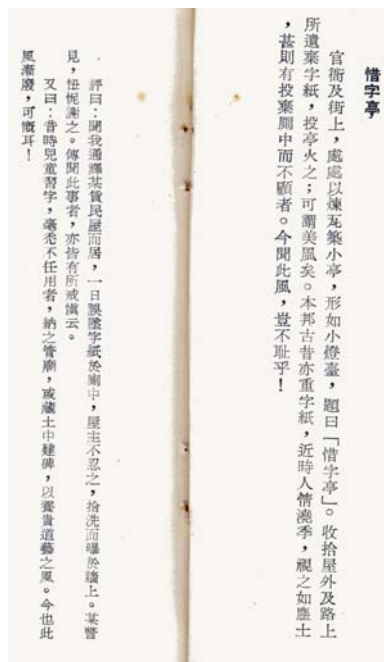 惜字亭
官衙及街上，處處以煉瓦築小亭，形如小燈臺，題曰「惜字亭」。收拾屋外及路上
所遺棄字紙，投亭火之；可謂美風矣。本邦古昔亦重字紙，近時人情澆季，視之如塵土
，甚則有投棄厠中而不顧者。今聞此風，豈不耻乎！
評曰：聞我通譯某賃民屋而居，一日誤墜字紙於厠中，屋主不忍之，拾洗而曝於牆上。某瞥
見，忸怩謝之。傳聞此事者，亦皆有所戒愼云。
又曰：昔時兒童習字，毫禿不任用者，納之菅廟，或藏土中建碑，以養貴道藝之風。今也此
風漸廢，可慨耳！